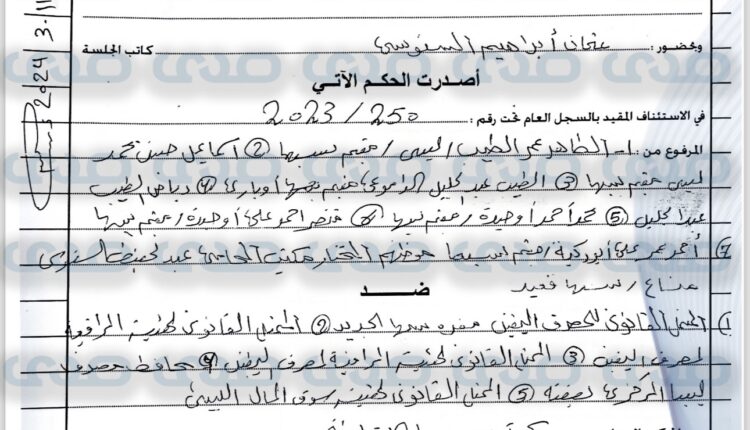 وبحضور : عثمان أبراهيم السنوسي كاتب الجلسة
أصدرت الحكم الآتي
في الاستئناف المقيد بالسجل العام تحت رقم : 250 / 2023
المرفوع من : 1- الطاهر عمر الطيب / ليبي / مقيم بسبها ② أسماعيل حسن محمد
ليبي مقيم سبها ③ الطيب عبد الجليل مقيم أوباري ④ رياض الطيب
عبد الجليل ⑤ محمد أحمد أوحيدة / مقيم سبها ⑥ أحمد علي أوحيدة / مقيم سبها
⑦ أحمد عمر علي أبوركية / مقيم بسبها موطنهم المختار مكتب المحامي عبد الحفيظ السنوسي
مناع / سبها
ضد
① الممثل القانوني لمصرف اليقين مقره سبها الجديد ② الممثل القانوني للجنة المراقبة
لمصرف اليقين ③ الممثل القانوني للجنة المراقبة لمصرف اليقين ④ محافظ مصرف
ليبيا المركزي بصفته ⑤ الممثل القانوني سوق المال الليبي
2024 / 3
صدى